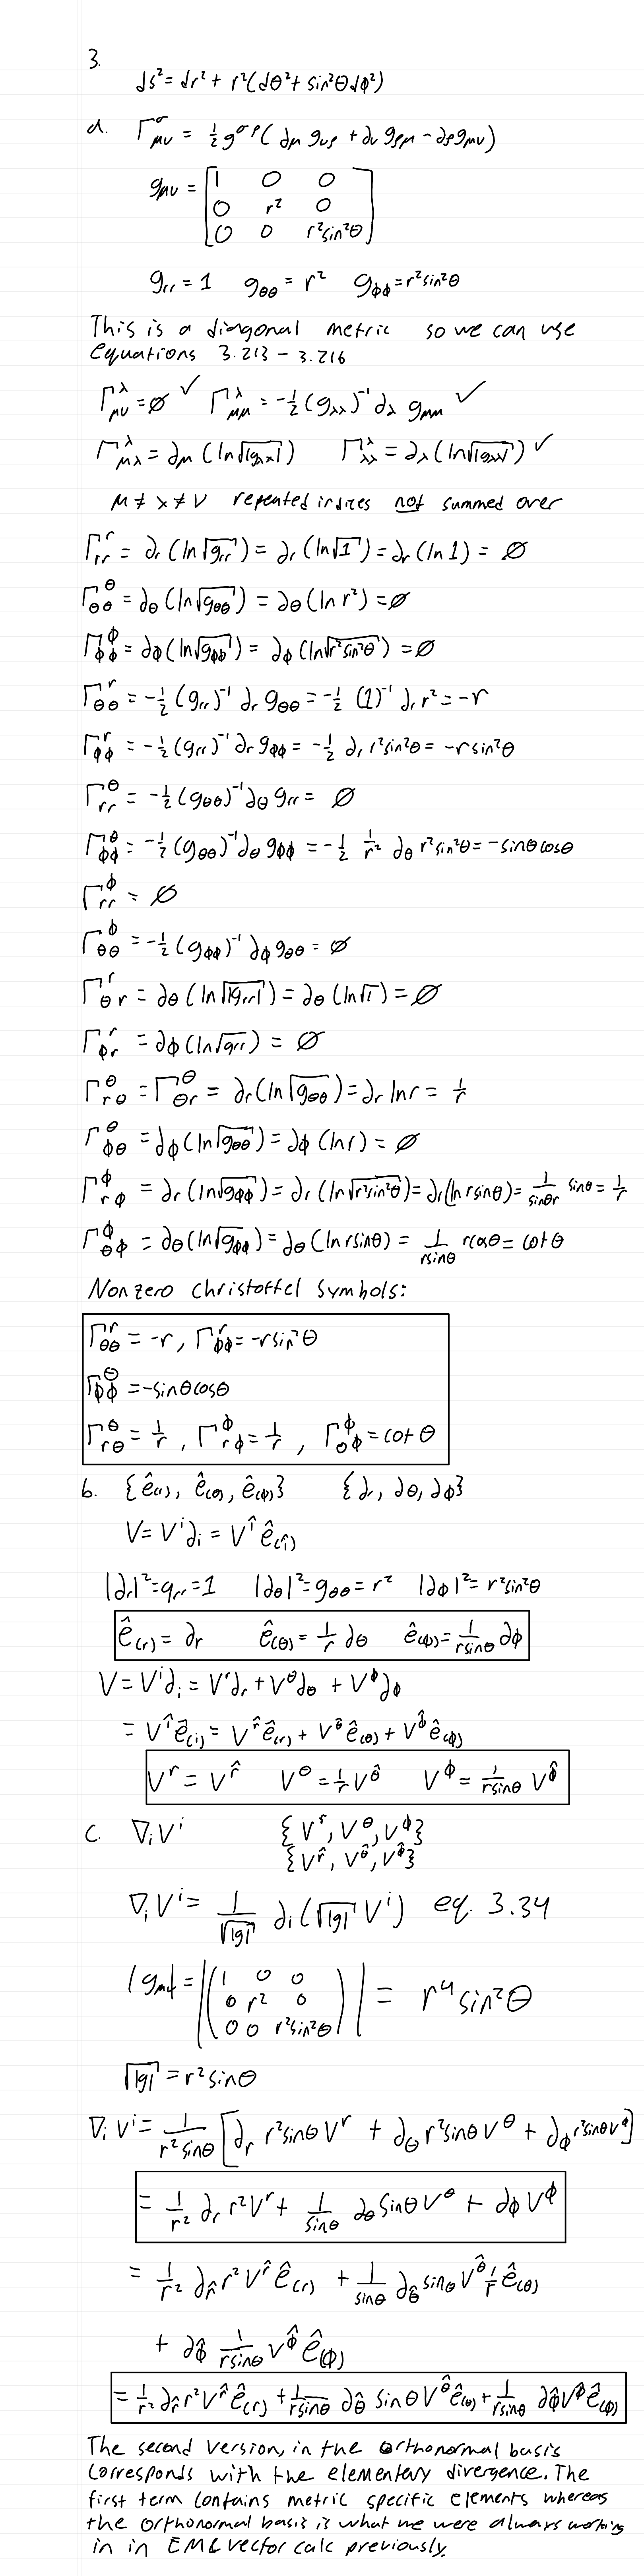 3.
ds² = dr² + r²(dθ² + sin²θ dϕ²)
a. Γ^σ_μν = ½ g^σρ (∂μ gνρ + ∂ν gρμ − ∂ρ gμν)
gμν = [1 0 0
0 r² 0
0 0 r²sin²θ]
grr = 1 gθθ = r² gϕϕ = r²sin²θ
This is a diagonal metric so we can use
equations 3.213 - 3.216
Γ^λ_μν = ∅ ✓ Γ^λ_μμ = -½ (gλλ)⁻¹ ∂λ gμμ ✓
Γ^λ_μλ = ∂μ (ln√|gλλ|) Γ^λ_λλ = ∂λ (ln√|gλλ|) ✓
μ ≠ λ ≠ ν repeated indices not summed over
Γ^r_rr = ∂r (ln√grr) = ∂r (ln√1) = ∂r (ln 1) = ∅
Γ^θ_θθ = ∂θ (ln√gθθ) = ∂θ (ln r²) = ∅
Γ^ϕ_ϕϕ = ∂ϕ (ln√gϕϕ) = ∂ϕ (ln√r²sin²θ) = ∅
Γ^r_θθ = -½ (grr)⁻¹ ∂r gθθ = -½ (1)⁻¹ ∂r r² = -r
Γ^r_ϕϕ = -½ (grr)⁻¹ ∂r gϕϕ = -½ ∂r r²sin²θ = -r sin²θ
Γ^θ_rr = -½ (gθθ)⁻¹ ∂θ grr = ∅
Γ^θ_ϕϕ = -½ (gθθ)⁻¹ ∂θ gϕϕ = -½ 1/r² ∂θ r²sin²θ = -sinθcosθ
Γ^ϕ_rr = ∅
Γ^ϕ_θθ = -½ (gϕϕ)⁻¹ ∂ϕ gθθ = ∅
Γ^r_θr = ∂θ (ln√|grr|) = ∂θ (ln√1) = ∅
Γ^r_ϕr = ∂ϕ (ln√grr) = ∅
Γ^θ_rθ = Γ^θ_θr = ∂r (ln√gθθ) = ∂r ln r = 1/r
Γ^θ_ϕθ = ∂ϕ (ln√gθθ) = ∂ϕ (ln r) = ∅
Γ^ϕ_rϕ = ∂r (ln√gϕϕ) = ∂r (ln√r²sin²θ) = ∂r (ln rsinθ) = 1/sinθr sinθ = 1/r
Γ^ϕ_θϕ = ∂θ (ln√gϕϕ) = ∂θ (ln rsinθ) = 1/rsinθ rcosθ = cotθ
Nonzero Christoffel Symbols:
Γ^r_θθ = -r, Γ^r_ϕϕ = -rsin²θ
Γ^θ_ϕϕ = -sinθcosθ
Γ^θ_rθ = 1/r, Γ^ϕ_rϕ = 1/r, Γ^ϕ_θϕ = cotθ
b. {ê(r), ê(θ), ê(ϕ)} {∂r, ∂θ, ∂ϕ}
V = V^i ∂i = V^î ê(î)
|∂r|² = grr = 1 |∂θ|² = gθθ = r² |∂ϕ|² = r²sin²θ
ê(r) = ∂r ê(θ) = 1/r ∂θ ê(ϕ) = 1/rsinθ ∂ϕ
V = V^i ∂i = V^r ∂r + V^θ ∂θ + V^ϕ ∂ϕ
= V^î ê(i) = V^r̂ ê(r) + V^θ̂ ê(θ) + V^ϕ̂ ê(ϕ)
V^r = V^r̂ V^θ = 1/r V^θ̂ V^ϕ = 1/rsinθ V^ϕ̂
c. ∇i V^i {V^r, V^θ, V^ϕ}
{V^r̂, V^θ̂, V^ϕ̂}
∇i V^i = 1/√|g| ∂i (√|g| V^i) eq. 3.34
|gμν| = |(1 0 0
0 r² 0
0 0 r²sin²θ)| = r⁴sin²θ
√|g| = r²sinθ
∇i V^i = 1/r²sinθ [∂r r²sinθ V^r + ∂θ r²sinθ V^θ + ∂ϕ r²sinθ V^ϕ]
= 1/r² ∂r r² V^r + 1/sinθ ∂θ sinθ V^θ + ∂ϕ V^ϕ
= 1/r² ∂r̂ r² V^r̂ ê(r) + 1/sinθ ∂θ̂ sinθ V^θ̂ 1/r ê(θ)
+ ∂ϕ̂ 1/rsinθ V^ϕ̂ ê(ϕ)
= 1/r² ∂r̂ r² V^r̂ ê(r) + 1/rsinθ ∂θ̂ sinθ V^θ̂ ê(θ) + 1/rsinθ ∂ϕ̂ V^ϕ̂ ê(ϕ)
The second version, in the orthonormal basis
corresponds with the elementary divergence. The
first term contains metric specific elements whereas
the orthonormal basis is what we were always working
in in EM & vector calc previously.